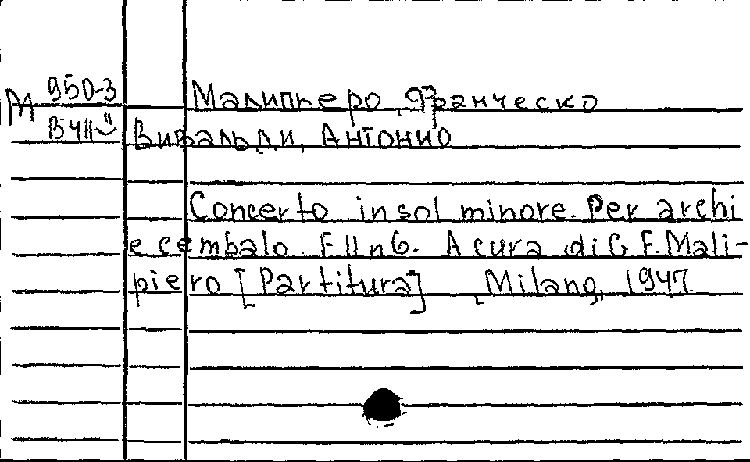 М 950-3
Малипьеро, Франческо
В 411
Вивальди, Антонио
Concerto in sol minore. Per archi
e cembalo. F. II n 6. A cura di G. F. Mali-
piero [Partitura] Milano, 1947